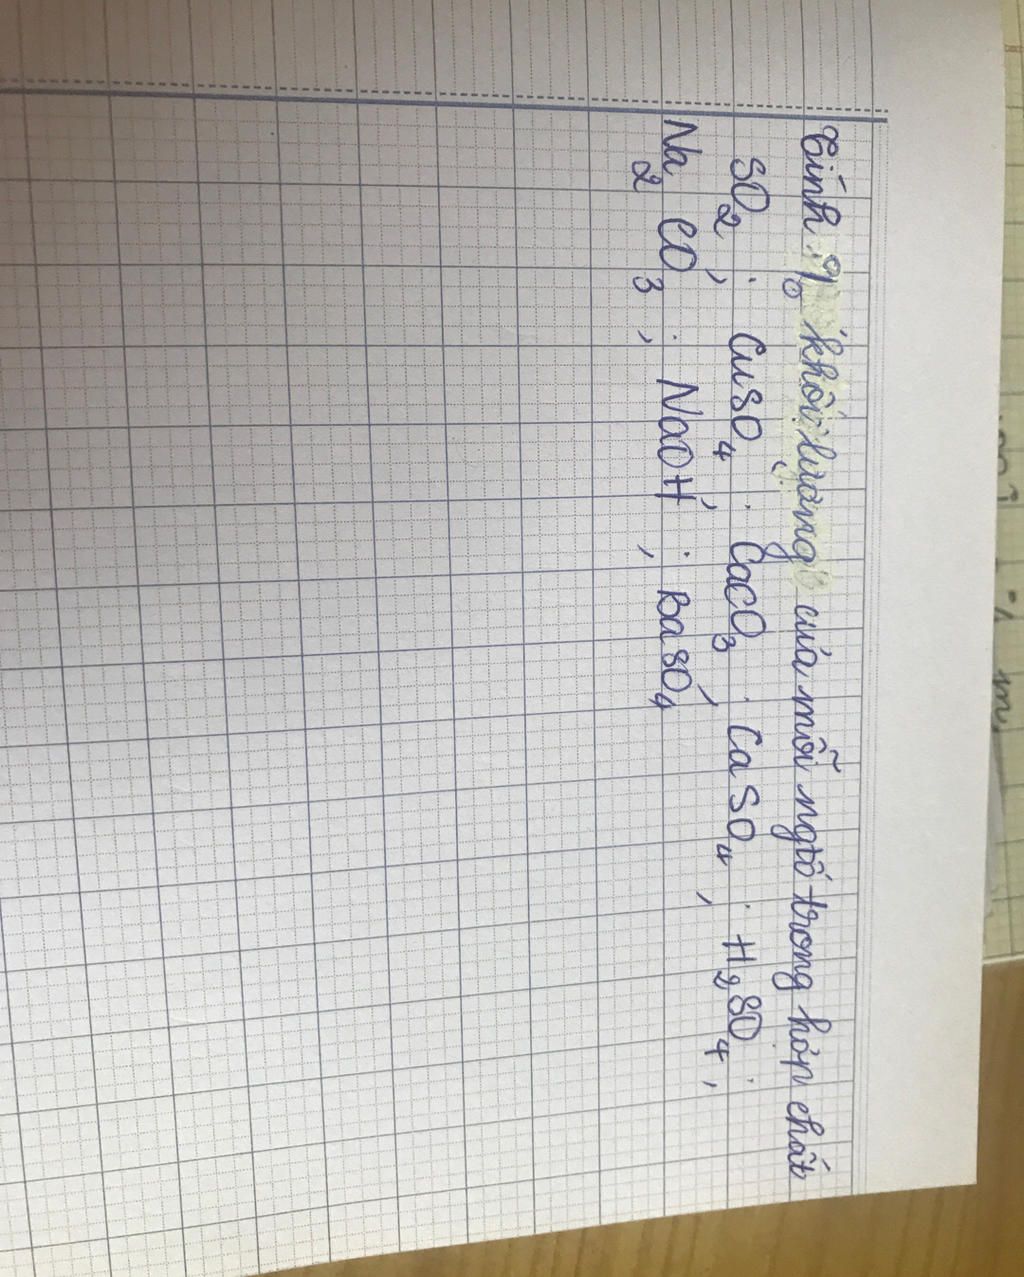 Tính % khối lượng của mỗi ngtố trong hợp chất
SO2; CuSO4; CaCO3; CaSO4; H2SO4;
Na2CO3; NaOH; BaSO4